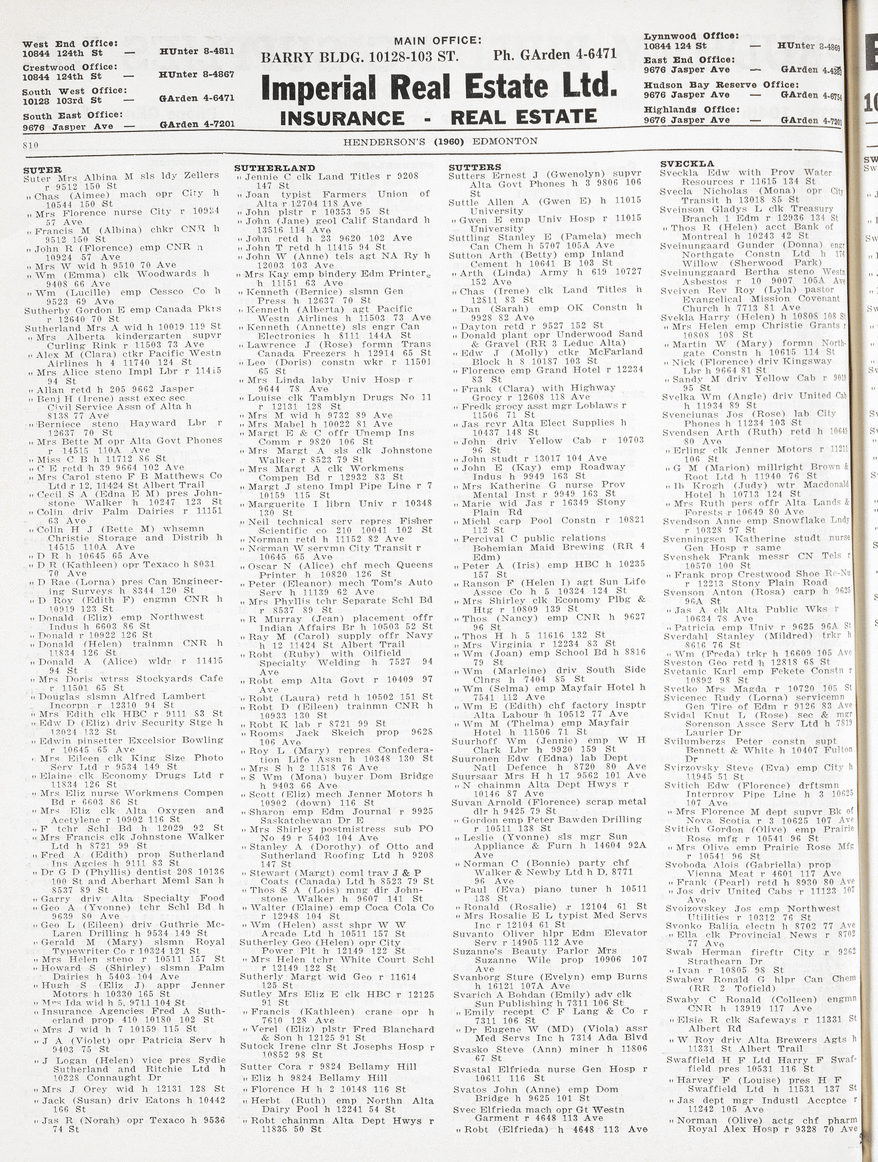 West End Office:
10844 124th St — HUnter 8-4811
Crestwood Office:
10844 124th St — HUnter 8-4867
South West Office:
10128 103rd St — GArden 4-6471
South East Office:
9676 Jasper Ave — GArden 4-7201
MAIN OFFICE:
BARRY BLDG. 10128-103 ST. Ph. GArden 4-6471
Imperial Real Estate Ltd.
INSURANCE - REAL ESTATE
Lynnwood Office:
10844 124 St — HUnter 8-4860
East End Office:
9676 Jasper Ave — GArden
Hudson Bay Reserve Office:
9676 Jasper Ave — GArden
Highlands Office:
9676 Jasper Ave — GArden 4-7201
810
HENDERSON'S (1960) EDMONTON
SUTER
Suter Mrs Albina M sls ldy Zellers
r 9512 150 St
„ Chas (Aimee) mach opr City h
10544 150 St
„ Mrs Florence nurse City r 10924
57 Ave
„ Francis M (Albina) chkr CNR h
9512 150 St
„ John R (Florence) emp CNR h
10924 57 Ave
„ Mrs W wid h 9510 70 Ave
„ Wm (Emma) clk Woodwards h
9408 66 Ave
„ Wm (Lucille) emp Cessco h
9523 69 Ave
Sutherby Gordon E emp Canada Pkrs
r 12640 70 St
Sutherland Mrs A wid h 10019 119 St
„ Mrs Alberta kindergarten supvr
Curling Rink r 11503 73 Ave
„ Alex M (Clara) ctkr Pacific Westn
Airlines h 4 11740 124 St
„ Mrs Alice steno Impl Lbr r 11415
94 St
„ Allan retd h 205 9662 Jasper
„ Benj H (Irene) asst exec sec
Civil Service Assn of Alta h
8138 77 Ave
„ Berniece steno Hayward Lbr r
12637 70 St
„ Mrs Bette M opr Alta Govt Phones
r 14515 110A Ave
„ Miss C B h 11712 86 St
„ C E retd h 39 9664 102 Ave
„ Mrs Carol steno F B Matthews Co
Ltd r 12, 11424 St Albert Trail
„ Cecil S A (Edna E M) pres John-
stone Walker h 10247 123 St
„ Colin driv Palm Dairies r 11151
63 Ave
„ Colin H J (Bette M) whsemn
Christie Storage and Distrib h
14515 110A Ave
„ D R h 10645 65 Ave
„ D R (Kathleen) opr Texaco h 8031
70 Ave
„ D Rae (Lorna) pres Can Engineer-
ing Surveys h 8344 120 St
„ D Roy (Edith F) engmn CNR h
10919 123 St
„ Donald (Eliz) emp Northwest
Indus h 6603 86 St
„ Donald r 10922 126 St
„ Donald (Helen) trainmn CNR h
11834 126 St
„ Donald A (Alice) wldr r 11415
94 St
„ Mrs Doris wtrss Stockyards Cafe
r 11501 65 St
„ Douglas slsmn Alfred Lambert
Incorpn r 12310 94 St
„ Mrs Edith clk HBC r 9111 83 St
„ Edw D (Eliz) driv Security Stge h
13024 132 St
„ Edwin pinsetter Excelsior Bowling
r 10645 65 Ave
„ Mrs Eileen clk King Size Photo
Serv Ltd r 9534 149 St
„ Elaine clk Economy Drugs Ltd r
11834 126 St
„ Mrs Eliz nurse Workmens Compen
Bd r 6603 86 St
„ Mrs Eliz clk Alta Oxygen and
Acetylene r 10902 116 St
„ F tchr Schl Bd h 12029 92 St
„ Mrs Francis clk Johnstone Walker
Ltd h 8721 99 St
„ Fred A (Edith) prop Sutherland
Ins Agcies h 9111 83 St
„ Dr G D (Phyllis) dentist 208 10136
100 St and Aberhart Meml San h
8537 89 St
„ Garry driv Alta Specialty Food
„ Geo A (Yvonne) tchr Schl Bd h
9639 80 Ave
„ Geo L (Eileen) driv Guthrie Mc-
Laren Drilling h 9534 149 St
„ Gerald M (Mary) slsmn Royal
Typewriter Co r 10324 121 St
„ Mrs Helen steno r 10511 157 St
„ Howard S (Shirley) slsmn Palm
Dairies h 5403 104 Ave
„ Hugh S (Eliz J) appr Jenner
Motors h 10330 165 St
„ Mrs Ida wid h 5, 9711 104 St
„ Insurance Agencies Fred A Suth-
erland prop 410 10180 102 St
„ Mrs J wid h 7 10159 115 St
„ J A (Violet) opr Patricia Serv h
9403 75 St
„ J Logan (Helen) vice pres Sydie
Sutherland and Ritchie Ltd h
10328 Connaught Dr
„ Mrs J Orey wid h 12131 128 St
„ Jack (Susan) driv Eatons h 10442
166 St
„ Jas R (Norah) opr Texaco h 9536
74 St
SUTHERLAND
„ Jennie C clk Land Titles r 9208
147 St
„ Joan typist Farmers Union of
Alta r 12704 118 Ave
„ John plstr r 10353 95 St
„ John (Jane) geol Calif Standard h
13516 114 Ave
„ John retd h 23 9620 102 Ave
„ John T retd h 11415 94 St
„ John W (Anne) tels agt NA Ry h
12003 103 Ave
„ Mrs Kay emp bindery Edm Printers
h 11151 63 Ave
„ Kenneth (Bernice) slsmn Gen
Press h 12637 70 St
„ Kenneth (Alberta) agt Pacific
Westn Airlines h 11503 73 Ave
„ Kenneth (Annette) sls engr Can
Electronics h 8111 144A St
„ Lawrence J (Rose) formn Trans
Canada Freezers h 12914 65 St
„ Leo (Doris) constn wkr r 11501
65 St
„ Mrs Linda laby Univ Hosp r
9644 78 Ave
„ Louise clk Tamblyn Drugs No 11
r 12131 128 St
„ Mrs M wid h 9732 89 Ave
„ Mrs Mabel h 10022 81 Ave
„ Margt E & C offr Unemp Ins
Comm r 9820 106 St
„ Mrs Margt A sls clk Johnstone
Walker r 8523 79 St
„ Mrs Margt A clk Workmens
Compen Bd r 12932 83 St
„ Margt J steno Impl Pipe Line r 7
10159 115 St
„ Marguerite I librn Univ r 10348
130 St
„ Neil technical serv repres Fisher
Scientific co 210 10041 102 St
„ Norman retd h 11152 82 Ave
„ Norman W servmn City Transit r
10645 65 Ave
„ Oscar N (Alice) chf mech Queens
Printer h 10820 126 St
„ Peter (Eleanor) mech Tom's Auto
Serv h 11139 62 Ave
„ Mrs Phyllis tchr Separate Schl Bd
r 8537 89 St
„ R Murray (Jean) placement offr
Indian Affairs Br h 10503 52 St
„ Ray M (Carol) supply offr Navy
h 12 11424 St Albert Trail
„ Robt (Ruby) with Oilfield
Specialty Welding h 7527 94
Ave
„ Robt emp Alta Govt r 10409 97
Ave
„ Robt (Laura) retd h 10502 151 St
„ Robt D (Eileen) trainmn CNR h
10933 130 St
„ Robt K lab r 8721 99 St
„ Rooms Jack Skeich prop 9628
106 Ave
„ Roy L (Mary) repres Confedera-
tion Life Assn h 10348 130 St
„ Mrs S h 2 11518 76 Ave
„ S Wm (Mona) buyer Dom Bridge
h 9403 66 Ave
„ Scott (Eliz) mech Jenner Motors h
10902 (down) 116 St
„ Sharon emp Edm Journal r 9925
Saskatchewan Dr E
„ Mrs Shirley postmistress sub PO
No 49 r 5403 104 Ave
„ Stanley A (Dorothy) of Otto and
Sutherland Roofing Ltd h 9208
147 St
„ Stewart (Margt) coml trav J & P
Coats (Canada) Ltd h 8523 79 St
„ Thos S A (Lois) mng dir John-
stone Walker h 9607 141 St
„ Walter (Elaine) emp Coca Cola Co
r 12948 104 St
„ Wm (Helen) asst shpr W W
Arcade Ltd h 10511 157 St
Sutherley Geo (Helen) opr City
Power Plt h 12149 122 St
„ Mrs Helen tchr White Court Schl
r 12149 122 St
Sutherly Margt wid Geo r 11614
125 St
Sutley Mrs Eliz E clk HBC r 12125
91 St
„ Francis (Kathleen) crane opr h
7610 128 Ave
„ Verel (Eliz) plstr Fred Blanchard
& Son h 12125 91 St
Sutock Irene clnr St Josephs Hosp r
10852 98 St
Sutter Cora r 9824 Bellamy Hill
„ Eliz h 9824 Bellamy Hill
„ Florence H h 2 10148 116 St
„ Herbt (Ruth) emp Northn Alta
Dairy Pool h 12241 54 St
„ Robt chainmn Alta Dept Hwys r
11835 50 St
SUTTERS
Sutters Ernest J (Gwenolyn) supvr
Alta Govt Phones h 3 9806 106
St
Suttle Allen A (Gwen E) h 11015
University
„ Gwen E emp Univ Hosp r 11015
University
Suttling Stanley E (Pamela) mech
Can Chem h 5707 105A Ave
Sutton Arth (Betty) emp Inland
Cement h 10641 B 103 St
„ Arth (Linda) Army h 619 10727
152 Ave
„ Chas (Irene) clk Land Titles h
12811 83 St
„ Dan (Sarah) emp OK Constn h
9928 82 Ave
„ Dayton retd r 9527 152 St
„ Donald plant opr Underwood Sand
& Gravel (RR 3 Leduc Alta)
„ Edw J (Molly) ctkr McFarland
Block h 8 10187 103 St
„ Florence emp Grand Hotel r 12234
83 St
„ Frank (Clara) with Highway
Grocy r 12608 118 Ave
„ Fredk grocy asst mgr Loblaws r
11506 71 St
„ Jas rcvr Alta Elect Supplies h
10437 148 St
„ John driv Yellow Cab r 10703
96 St
„ John studt r 13017 104 Ave
„ John E (Kay) emp Roadway
Indus h 9949 163 St
„ Mrs Katherine G nurse Prov
Mental Inst r 9949 163 St
„ Marie wid Jas r 16349 Stony
Plain Rd
„ Michl carp Pool Constn r 10821
112 St
„ Percival C public relations
Bohemian Maid Brewing (RR 4
Edm)
„ Peter A (Iris) emp HBC h 10235
157 St
„ Ranson F (Helen I) agt Sun Life
Assce Co h 5 10324 124 St
„ Mrs Shirley clk Economy Plbg &
Htg r 10809 139 St
„ Thos (Nancy) emp CNR h 9627
96 St
„ Thos H h 5 11616 132 St
„ Mrs Virginia r 12234 83 St
„ Wm (Joan) emp School Bd h 8816
79 St
„ Wm (Marleine) driv South Side
Clnrs h 7404 85 St
„ Wm (Selma) emp Mayfair Hotel h
7541 112 Ave
„ Wm E (Edith) chf factory insptr
Alta Labour h 10512 77 Ave
„ Wm M (Thelma) emp Mayfair
Hotel h 11506 71 St
Suurhoff Wm (Jennie) emp W H
Clark Lbr h 9920 159 St
Suuronen Edw (Edna) lab Dept
Natl Defence h 8720 80 Ave
Suursaar Mrs H h 17 9562 101 Ave
„ N chainmn Alta Dept Hwys r
10146 87 Ave
Suvan Arnold (Florence) scrap metal
dlr h 9425 79 St
„ Gordon emp Peter Bawden Drilling
r 10511 138 St
„ Leslie (Yvonne) sls mgr Sun
Appliance & Furn h 14604 92A
Ave
„ Norman C (Bonnie) party chf
Walker & Newby Ltd h D, 8771
96 Ave
„ Paul (Eva) piano tuner h 10511
138 St
„ Ronald (Rosalie) r 12104 61 St
„ Mrs Rosalie E L typist Med Servs
Inc r 12104 61 St
Suvanto Oliver hlpr Edm Elevator
Serv r 14905 112 Ave
Suzanne's Beauty Parlor Mrs
Suzanne Wile prop 10906 107
Ave
Svanborg Sture (Evelyn) emp Burns
h 16121 107A Ave
Svarich A Bohdan (Emily) adv clk
Sun Publishing h 7311 106 St
„ Emily recept C F Lang & Co r
7311 106 St
„ Dr Eugene W (MD) (Viola) assr
Med Servs Inc h 7314 Ada Blvd
Svasko Steve (Ann) miner h 11806
67 St
Svastal Elfrieda nurse Gen Hosp r
10611 116 St
Svatos John (Anne) emp Dom
Bridge h 9625 101 St
Svec Elfrieda mach opr Gt Westn
Garment r 4648 113 Ave
„ Robt (Elfrieda) h 4648 113 Ave
SVECKLA
Sveckla Edw with Prov Water
Resources r 11615 134 St
Svecla Nicholas (Mona) opr City
Transit h 13018 85 St
Sveinson Gladys L clk Treasury
Branch 1 Edm r 12936 134 St
„ Thos R (Helen) acct Bank of
Montreal h 10243 42 St
Sveinungaard Gunder (Donna) engr
Northgate Constn Ltd h 176
Willow (Sherwood Park)
Sveinunggaard Bertha steno Westn
Asbestos r 10 9007 105A Ave
Sveiven Rev Roy (Lyla) pastor
Evangelical Mission Covenant
Church h 7713 81 Ave
Svekla Harry (Helen) h 10808 108 St
„ Mrs Helen emp Christie Grants r
10808 108 St
„ Martin W (Mary) formn North-
gate Constn h 10615 114 St
„ Nick (Florence) driv Kingsway
Lbr h 9664 81 St
„ Sandy M driv Yellow Cab r
95 St
Svelka Wm (Angle) driv United Cab
h 11934 89 St
Svenciunas Jos (Rose) lab City
Phones h 11234 103 St
Svendsen Arth (Ruth) retd h 10649
80 Ave
„ Erling clk Jenner Motors r
106 St
„ G M (Marion) millright Brown &
Root Ltd h 11940 76 St
„ Ib Krogh (Judy) wtr Macdonald
Hotel h 10713 124 St
„ Mrs Ruth pers offr Alta Lands &
Forests r 10649 80 Ave
Svendson Anne emp Snowflake Lndy
r 10328 97 St
Svenningsen Katherine studt nurse
Gen Hosp r same
Svenshek Frank messr CN Tels r
10570 100 St
„ Frank prop Crestwood Shoe Re-Nu
r 12213 Stony Plain Road
Svenson Anton (Rosa) carp h 9625
96A St
„ Jas A clk Alta Public Wks r
10634 78 Ave
„ Patricia emp Univ r 9625 96A St
Sverdahl Stanley (Mildred) trkr h
8616 76 St
„ Wm (Freda) trkr h 16609 105 Ave
Sveston Geo retd h 12818 68 St
Svetanic Karl emp Fekete Constn r
10892 98 St
Svetko Mrs Magda r 10720 105 St
Svicenec Rudy (Lorna) servicemn
Gen Tire of Edm r 9126 83 Ave
Svidal Knut L (Rose) sec & mgr
Sorenson Assce Serv Ltd h 7819
Laurier Dr
Svilumberzs Peter constn supt
Bennett & White h 10407 Fulton
Dr
Svirzovsky Steve (Eva) emp City h
11945 51 St
Svitich Edw (Florence) drftsmn
Interprov Pipe Line h 3 10625
107 Ave
„ Mrs Florence M dept supvr Bk of
Nova Scotia r 3 10625 107 Ave
Svitich Gordon (Olive) emp Prairie
Rose mfg r 10541 96 St
„ Mrs Olive emp Prairie Rose Mfg
r 10541 96 St
Svoboda Alois (Gabriella) prop
Vienna Meat r 4601 117 Ave
„ Frank (Pearl) retd h 8930 80 Ave
„ Jos driv United Cabs r 11123 107
Ave
Svoizovskey Jos emp Northwest
Utilities r 10312 76 St
Svonko Ballia electn h 8702 77 Ave
„ Ella clk Provincial News r 8702
77 Ave
Swab Herman fireftr City r 9262
Strathearn Dr
„ Ivan r 10805 98 St
Swabey Ronald G hlpr Can Chem
(RR 2 Tofield)
Swaby C Ronald (Colleen) engmn
CNR h 13919 117 Ave
„ Elsie R clk Safeways r 11331 St
Albert Rd
„ W Roy driv Alta Brewers Agts h
11331 St Albert Trail
Swaffield H F Ltd Harry F Swaf-
field pres 10531 116 St
„ Harvey F (Louise) pres H F
Swaffield Ltd h 11531 137 St
„ Jas dept mgr Industl Accptce r
11242 105 Ave
„ Norman (Olive) actg chf pharm
Royal Alex Hosp r 9328 70 Ave